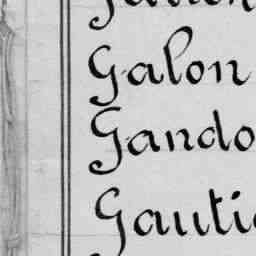 Galon
Gando
Gauti